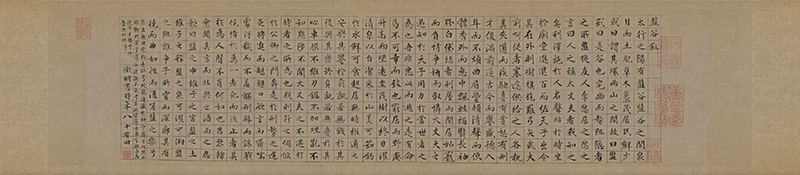 盤谷敘
太行之陽有盤谷盤谷之間泉
甘而土肥草木叢茂居民鮮少
或曰謂其環兩山之間故曰盤
或曰是谷也宅幽而勢阻隱者
之所盤旋友人李愿居之愿之
言曰人之稱大丈夫者我知之
矣利澤施於人名聲昭於時坐
於廟堂進退百官佐天子出令
其在外則樹旗旄羅弓矢武夫
前呵從者塞途供給之人各執
其物夾道而疾馳喜有賞怒有刑
才俊滿前道古今而譽盛德入
耳而不煩曲眉豐頰清聲而便
體秀外而惠中飄輕裾翳長袖
粉白黛綠者列屋而閑居妒寵
而負恃爭妍而取憐大丈夫之
遇知於天子用力於當世者之
所為也吾非惡此而逃之是有命
焉不可幸而致也窮居而野處
升高而望遠坐茂樹以終日濯
清泉以自潔采於山美可茹釣
於水鮮可食起居無時惟適之
安與其譽於前孰若無毀於其
後與其樂於身孰若無憂於其
心車服不維刀鋸不加理亂不
知黜陟不聞大丈夫之不遇於
時者之所為也我則行之伺候
於公卿之門奔走於形勢之途
足將進而趑趄口欲言而囁嚅
處污穢而不羞觸刑辟而誅戮
僥倖於萬一老死而後止者其
於為人賢不肖何如也昌黎韓
愈聞其言而壯之與之酒而為之
歌曰盤之中維子之宮盤之土
維子之稼盤之泉可濯可湘盤
之阻誰爭子所窈而深廓其有
容繚而曲如往而復嗟盤之樂兮
徵明書時年八十有四